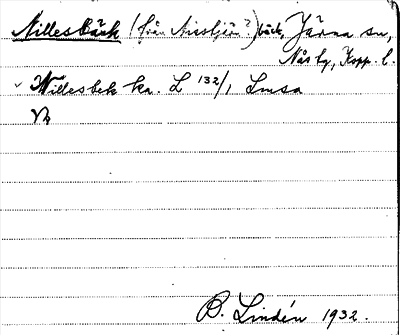 Nillesbäck (från Nissijän?) bäck, Järna sn,
Nås tg, Kopp. l.
Willesbek ka. L 132/1 Lmsa
B. Lindén 1932.